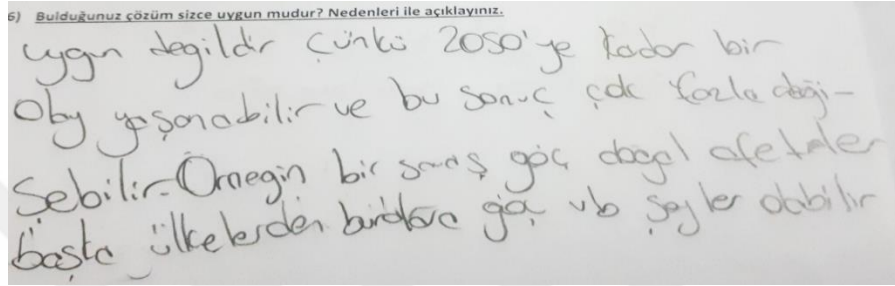 6) Bulduğunuz çözüm sizce uygun mudur? Nedenleri ile açıklayınız.
uygun değildir Çünkü 2050'ye kadar bir
olay yaşanabilir ve bu sonuç çok fazla deği-
şebilir. Örneğin bir savaş göç doğal afetler
başka ülkelerden buralara göç vb şeyler olabilir